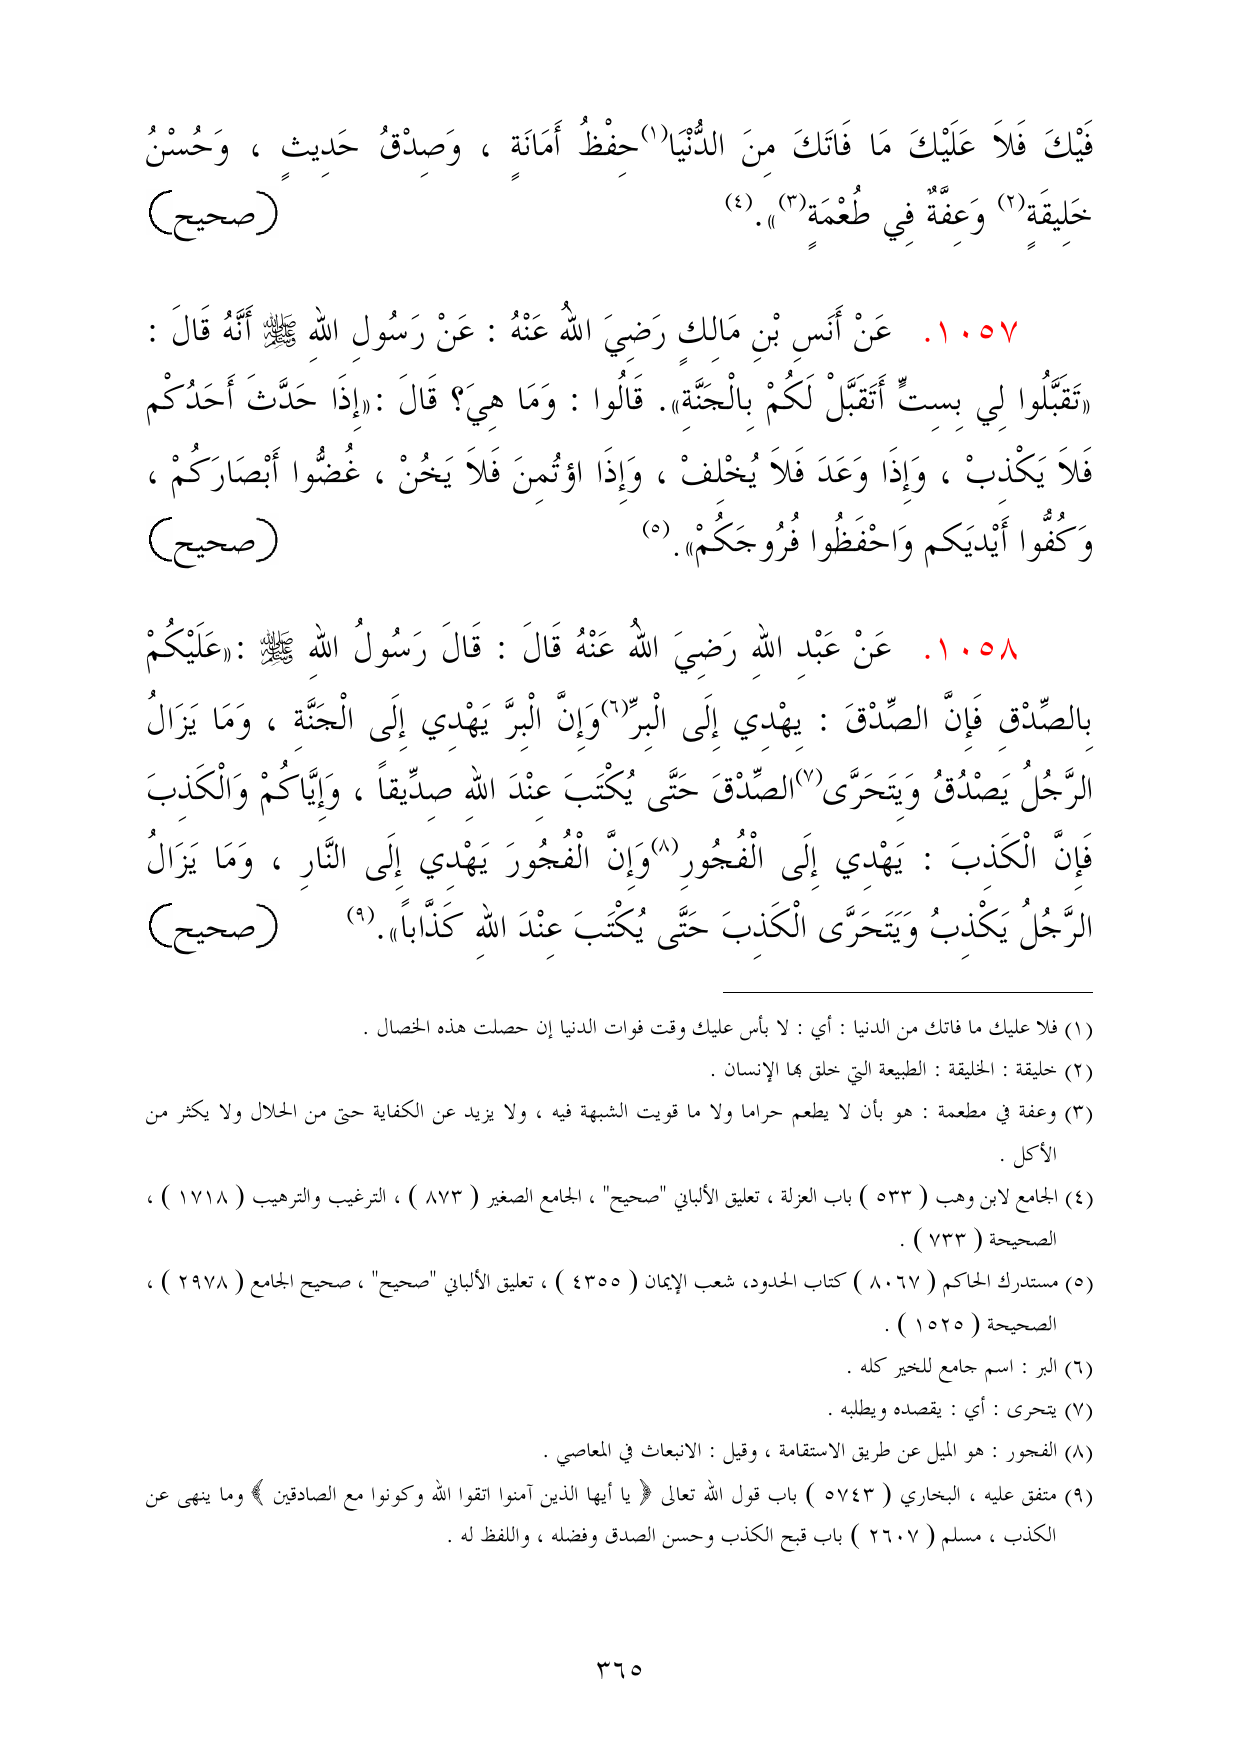 فَيْكَ فَلاَ عَلَيْكَ مَا فَاتَكَ مِنَ الدُّنْيَا(١)حِفْظُ أَمَانَةٍ ، وَصِدْقُ حَدِيثٍ ، وَحُسْنُ
خَلِيقَةٍ(٢) وَعِفَّةٌ فِي طُعْمَةٍ(٣)». (٤) (صحيح)
١٠٥٧. عَنْ أَنَسِ بْنِ مَالِكٍ رَضِيَ اللهُ عَنْهُ : عَنْ رَسُولِ اللهِ ﷺ أَنَّهُ قَالَ :
«تَقَبَّلُوا لِي بِسِتٍّ أَتَقَبَّلْ لَكُمْ بِالْجَنَّةِ». قَالُوا : وَمَا هِيَ؟ قَالَ :«إِذَا حَدَّثَ أَحَدُكُم
فَلاَ يَكْذِبْ ، وَإِذَا وَعَدَ فَلاَ يُخْلِفْ ، وَإِذَا اؤْتُمِنَ فَلاَ يَخُنْ ، غُضُّوا أَبْصَارَكُمْ ،
وَكُفُّوا أَيْدِيَكم وَاحْفَظُوا فُرُوجَكُمْ». (٥) (صحيح)
١٠٥٨. عَنْ عَبْدِ اللهِ رَضِيَ اللهُ عَنْهُ قَالَ : قَالَ رَسُولُ اللهِ ﷺ :«عَلَيْكُمْ
بِالصِّدْقِ فَإِنَّ الصِّدْقَ : يِهْدِي إِلَى الْبِرِّ(٦)وَإِنَّ الْبِرَّ يَهْدِي إِلَى الْجَنَّةِ ، وَمَا يَزَالُ
الرَّجُلُ يَصْدُقُ وَيَتَحَرَّى(٧)الصِّدْقَ حَتَّى يُكْتَبَ عِنْدَ اللهِ صِدِّيقاً ، وَإِيَّاكُمْ وَالْكَذِبَ
فَإِنَّ الْكَذِبَ : يَهْدِي إِلَى الْفُجُورِ(٨)وَإِنَّ الْفُجُورَ يَهْدِي إِلَى النَّارِ ، وَمَا يَزَالُ
الرَّجُلُ يَكْذِبُ وَيَتَحَرَّى الْكَذِبَ حَتَّى يُكْتَبَ عِنْدَ اللهِ كَذَّاباً». (٩) (صحيح)
(١) فلا عليك ما فاتك من الدنيا : أي : لا بأس عليك وقت فوات الدنيا إن حصلت هذه الخصال .
(٢) خليقة : الخليقة : الطبيعة التي خلق بها الإنسان .
(٣) وعفة في مطعمة : هو بأن لا يطعم حراما ولا ما قويت الشبهة فيه ، ولا يزيد عن الكفاية حتى من الحلال ولا يكثر من
الأكل .
(٤) الجامع لابن وهب ( ٥٣٣ ) باب العزلة ، تعليق الألباني "صحيح" ، الجامع الصغير ( ٨٧٣ ) ، الترغيب والترهيب ( ١٧١٨ ) ،
الصحيحة ( ٧٣٣ ) .
(٥) مستدرك الحاكم ( ٨٠٦٧ ) كتاب الحدود، شعب الإيمان ( ٤٣٥٥ ) ، تعليق الألباني "صحيح" ، صحيح الجامع ( ٢٩٧٨ ) ،
الصحيحة ( ١٥٢٥ ) .
(٦) البر : اسم جامع للخير كله .
(٧) يتحرى : أي : يقصده ويطلبه .
(٨) الفجور : هو الميل عن طريق الاستقامة ، وقيل : الانبعاث في المعاصي .
(٩) متفق عليه ، البخاري ( ٥٧٤٣ ) باب قول الله تعالى ﴿ يا أيها الذين آمنوا اتقوا الله وكونوا مع الصادقين ﴾ وما ينهى عن
الكذب ، مسلم ( ٢٦٠٧ ) باب قبح الكذب وحسن الصدق وفضله ، واللفظ له .
٣٦٥